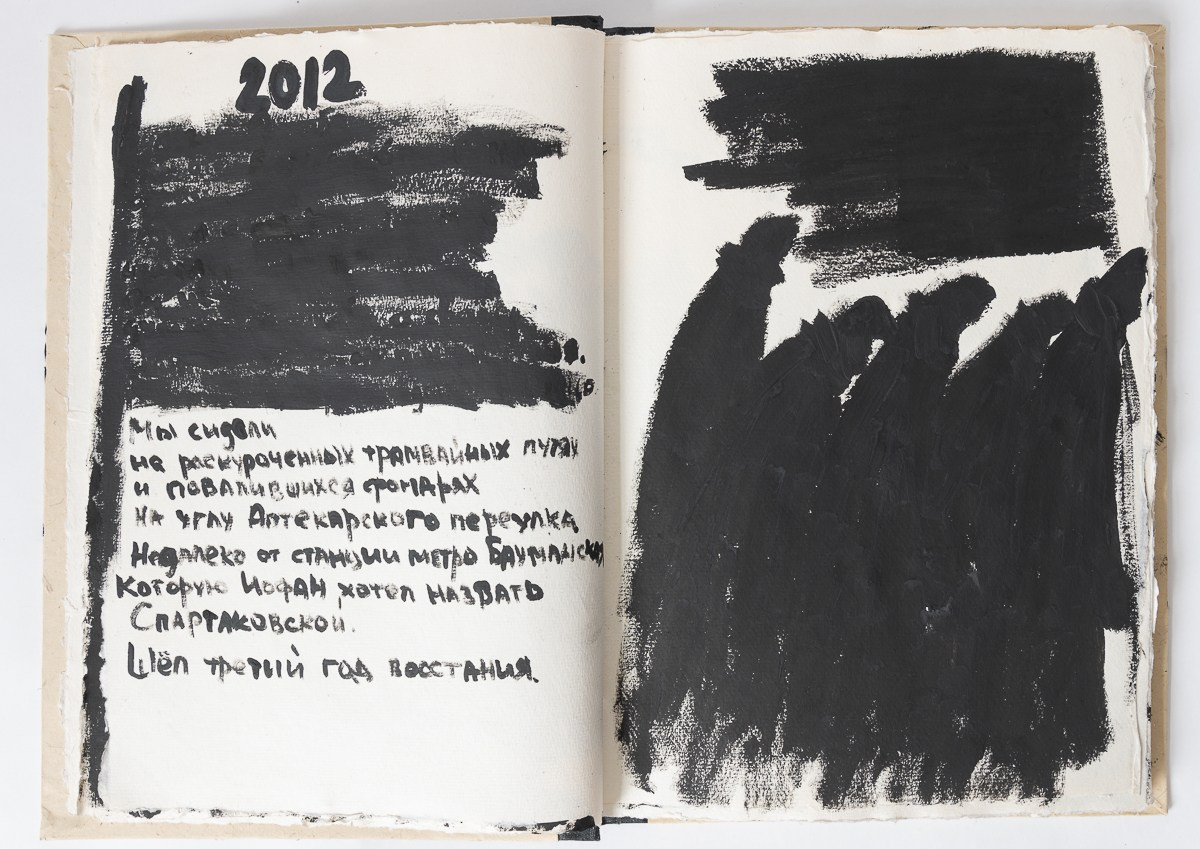 2012
Мы сидели
на раскуроченных трамвайных путях
и повалившихся фонарях
на углу Аптекарского переулка
Недалеко от станции метро Бауманская
Которую Иофан хотел назвать
Спартаковской.
Шёл третий год восстания.